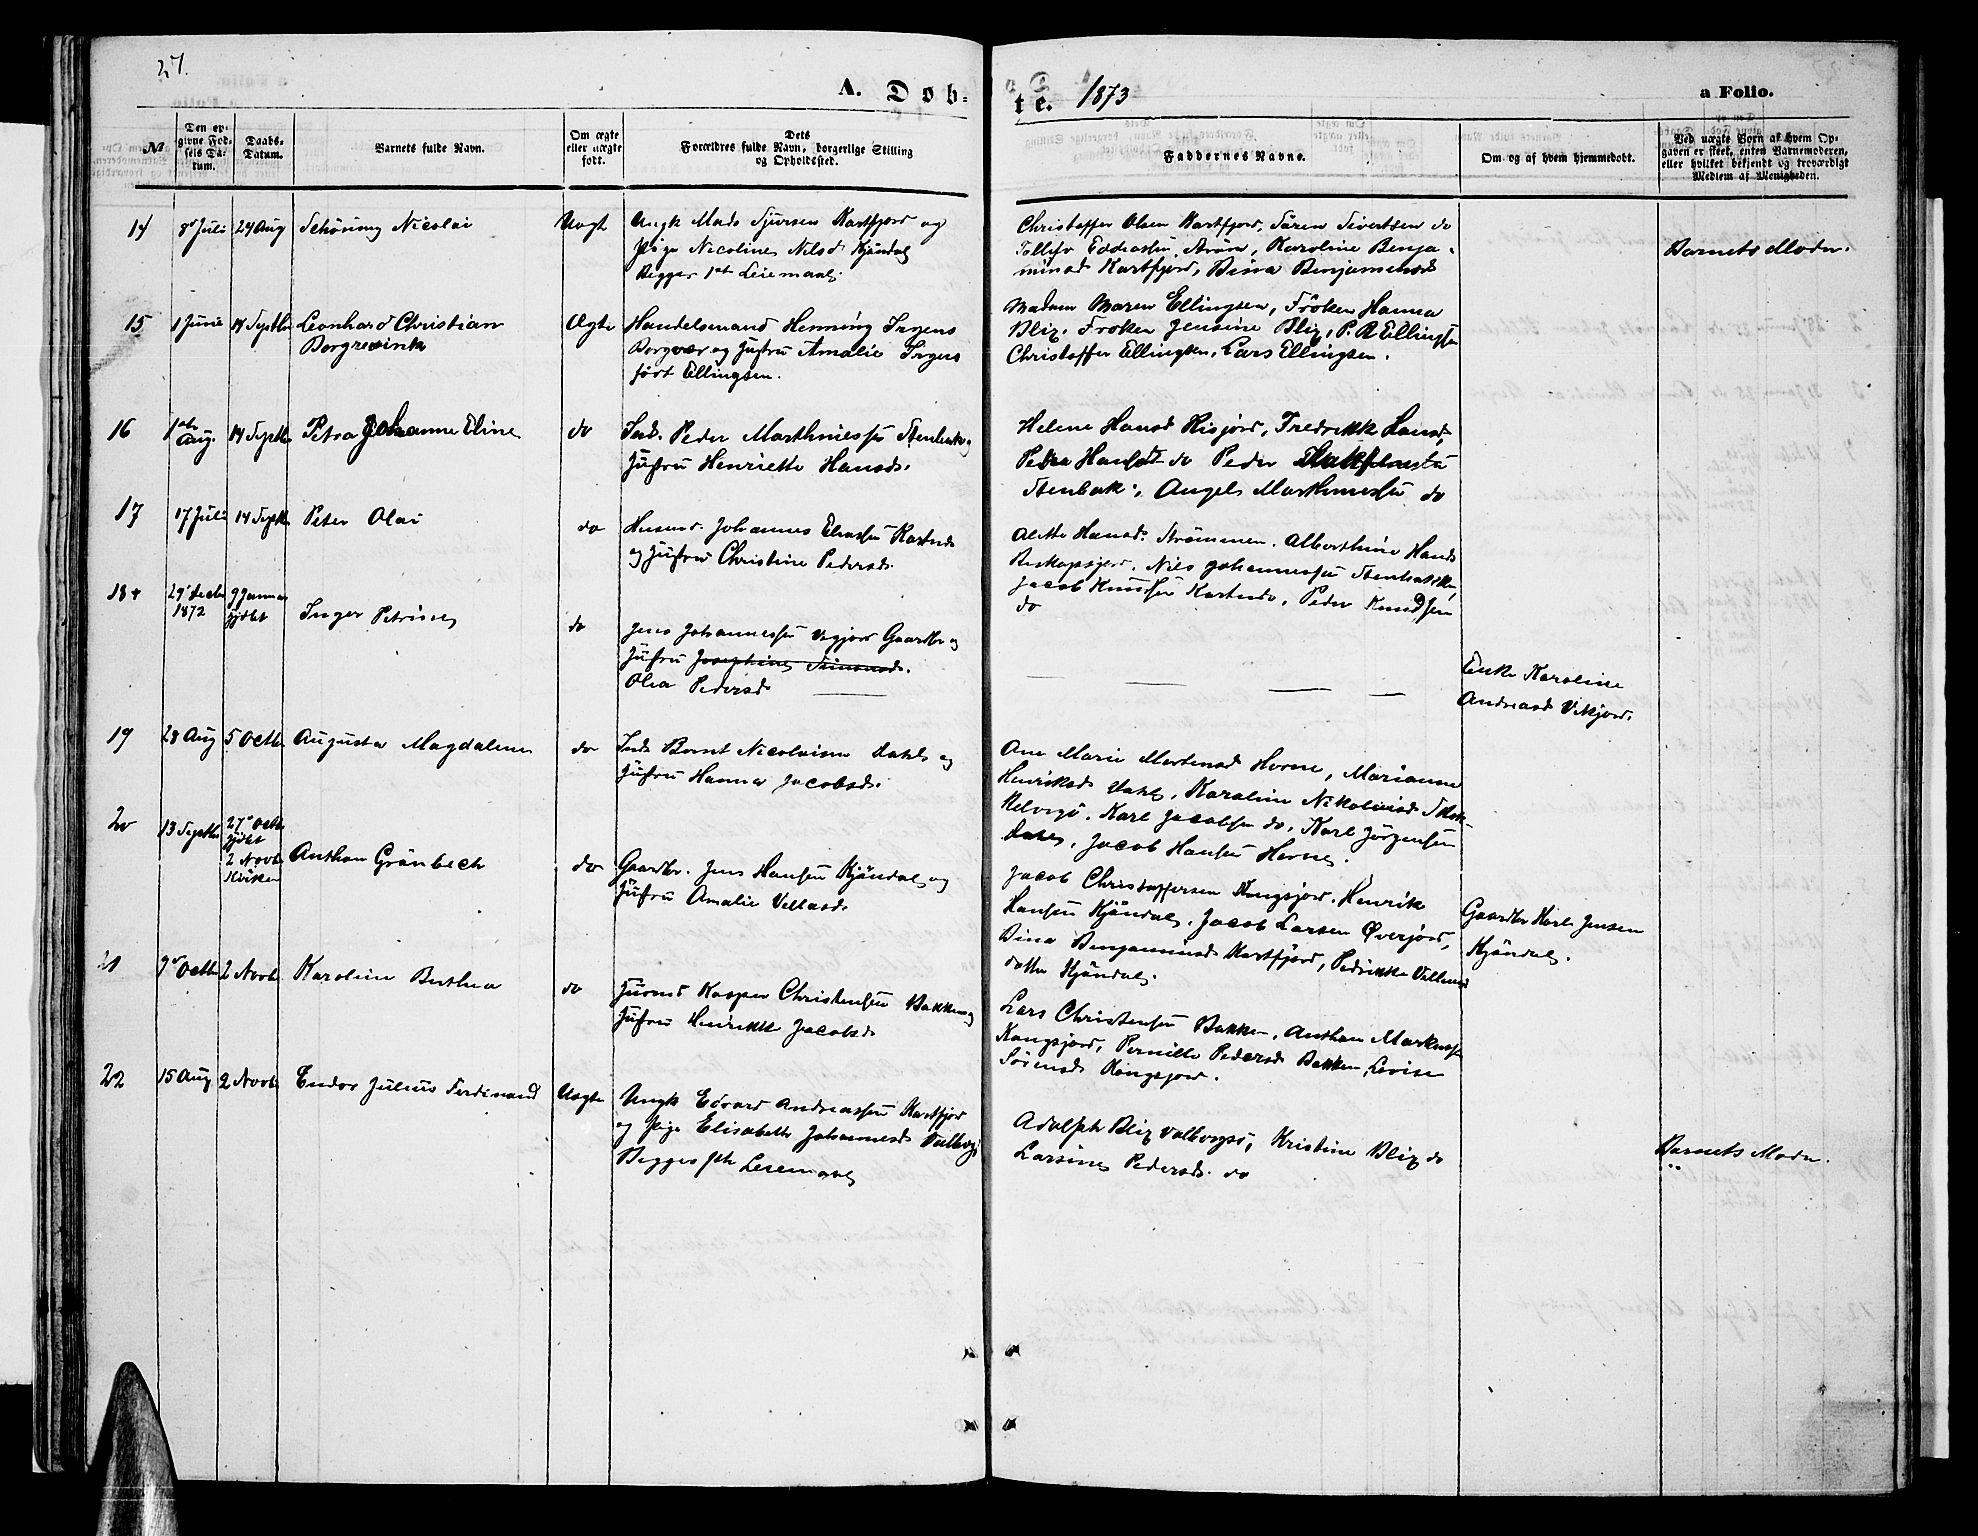 27.
A. Døb-
te. 1873
a Folio.
№
Den opgivne Fødsels Datum.
Daabs-Datum.
Barnets fulde Navn.
Om ægte eller uægte født.
Dets Forældres fulde Navn, borgerlige Stilling og Opholdssted.
Faddernes Navne.
Om og af hvem hjemmedøbt.
Ved uægte Børn af hvem Opgaven er skeet, enten Barnemoderen, eller hvilket bekjendt og troværdigt Medlem af Menigheden.
14 8de Juli 24 Aug Schöning Nicolai Uægt Ungk Mads Sjursen Kartfjord og
Pige Nicoline Nilsd Kjöndal
Begges 1st Leiemaal.
Christoffer Olsen Kartfjord, Sören Sivertsen do
Tollefr Eddiassen Arön, Karoline Benja-
minsd Kartfjord, Bina Benjaminsd
Barnets Moder.
15 1 Juni 14 Septbr Leonhard Christian
Borgrevink
Ægte Handelsmand Henning Irgens
Borgvær og Hustru Amalie Irgens
födt Ellingsen.
Madam Maren Ellingsen, Fröken Hanna
Blix, Fröken Jensine Blix, P. R Ellingsen
Christoffer Ellingsen, Lars Ellingsen.
16 1ste Aug. 14 Septbr Petra Johanne Eline do Inds. Peder Marthinessen Stenbak og
Hustru Henriette Hansd.
Helene Hansd Risjord, Fredrikk Hansd,
Petra Hansdt do Peder
Stenbak, Angel Marthinessen do
17 17 Juli 14 Septbr Peter Olai do Husmd. Johannes Eliassen
og Hustru Christine Pedersd.
Alette Hansd. Strömmen. Alberthine Hansd
Nils Johannessen Stenbakk,
Jacob Knudsen Peder Knudsen
do
18 29de Decbr 1872 9 Januar hjdbt Inger Petrine do Jens Johannessen Vigjord Gaardbr og
Hustru Josephine Simonsd.
Olea Pedersd
Enke Karoline
Andreasd Vikjord.
19 28 Aug 5 Octbr Augusta Magdalena do Inds Bernt Nicolaisen Dahl og
Hustru Hanna Jacobsd.
Ane Marie Mortensd Horne, Marianne
Henriksd Dahl, Karoline Nikolaisd
Karl Jacobsen do, Karl Jörgensen
Dahl, Jacob Hansen Horne.
20 13 Septbr 27de Octbr hjdbt 2 Novbr Kirken Anthon Grönbech do Gaardbr. Jens Hansen Kjöndal og
Hustru Amalie Vellasd.
Jacob Christoffersen Kongsjord, Henrik
Hansen Kjöndal, Jacob Larsen Överjord,
Bina Benjaminsd Kartfjord, Pedrikke
datter Kjöndal.
Gaardbr Karl Jensen
Kjöndal.
21 9de Octbr 2 Novbr Karoline Berthea do Husmd Kasper Christensen Bakken og
Hustru Henrikke Jacobsd
Lars Christensen Bakken, Anthon Markussen
Kongsjord, Pernille Pedersd Bakken, Lovise
Sörensd Kongsjord.
22 15 Aug 2 Novbr Endor Julius Ferdinand Uægte Ungk Edvard Andreassen Kartfjord
og Pige Elisabeth Johannesd Valbergö
Begges 1ste Leiemaal
Adolph Blix Valbergsö, Kristine Blix do
Larsine Pedersd. do
Barnets Moder.